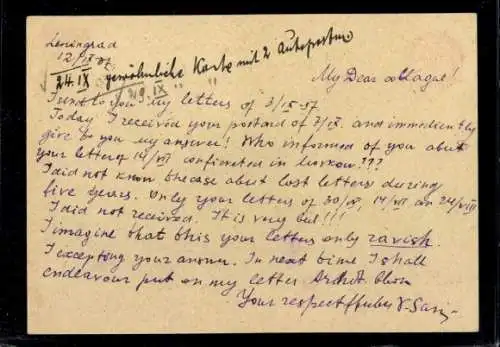 Leningrad
12/IX 57
24.IX gewöhnliche Karte mit 2 Autoposten
29.IX " "
My Dear collague!
I sent to you my letters of 3/IX-57
Today I received your postcard of 7/IX. and immediently
give to you my answer! Who informed of you about
your letters of 14/VII confiscated in Moskow???
I did not know becase about lost letters during
five years. Only your letters of 30/ , 14/VII an 24/VIII
I did not received. It is very bad!!!
I imagine that this your letters only ravish.
I excepting your answer. In next time I shall
endeavour put on my letter
Your respectffuley